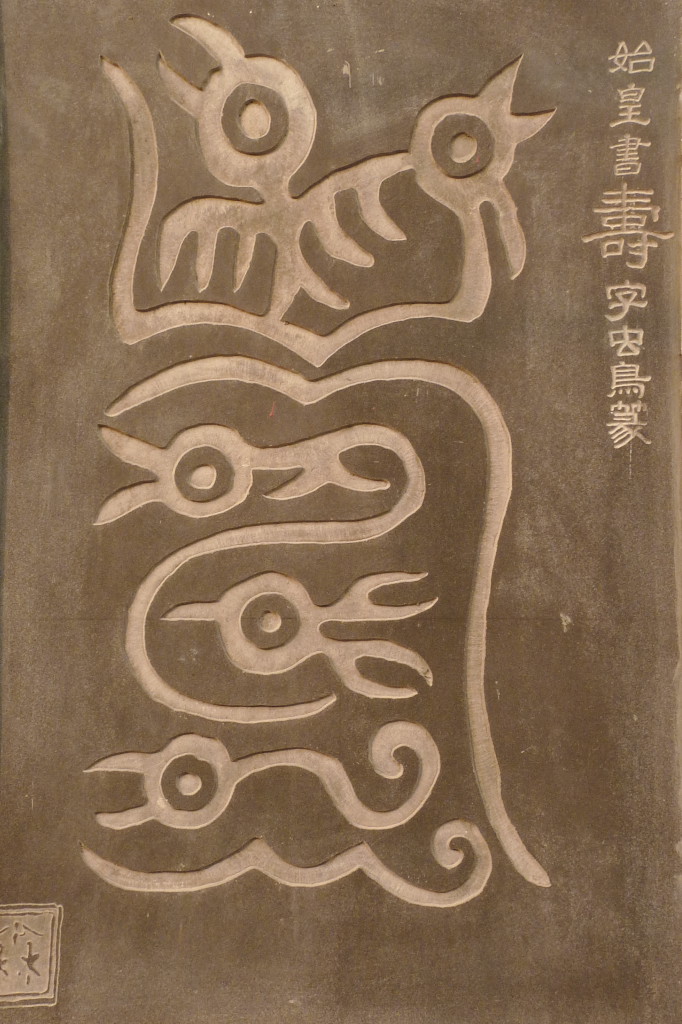 始皇書壽字虫鳥篆